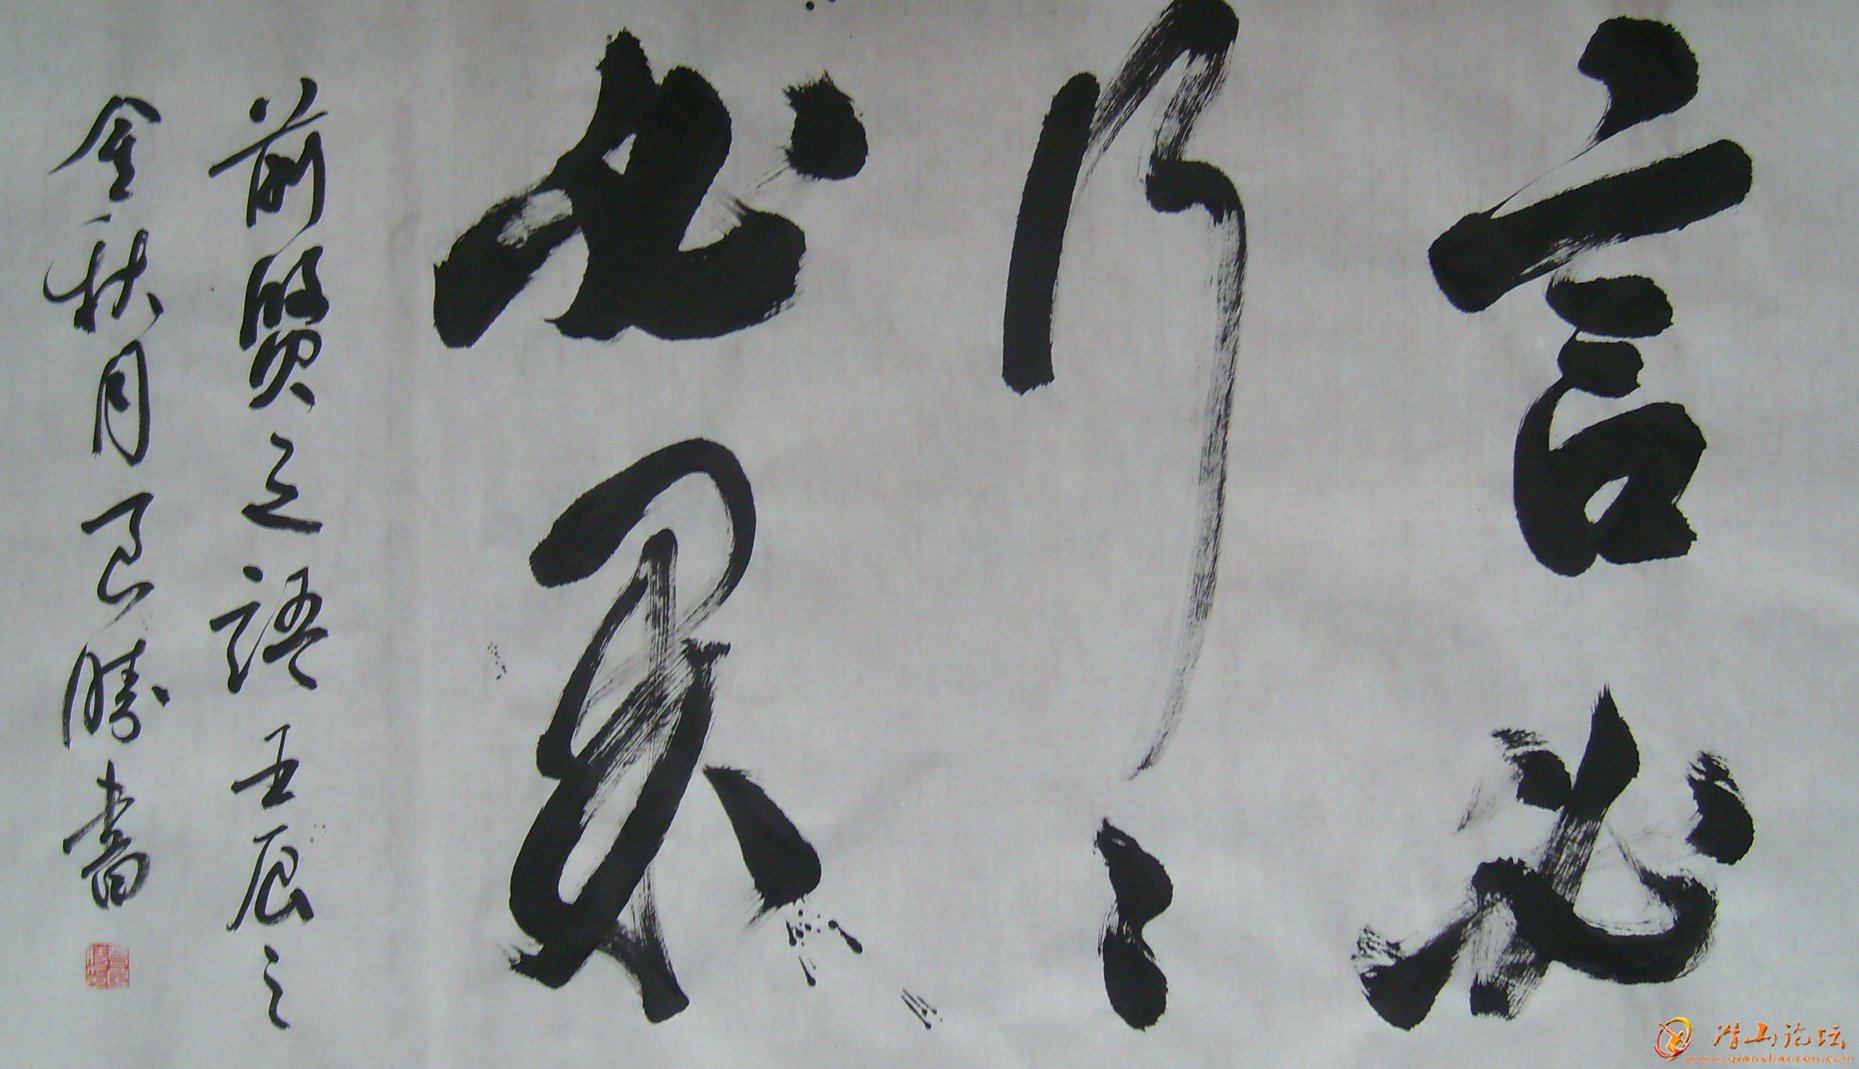 言必
行〻
必果
前賢之語壬辰之
金秋月良勝書
潜山论坛
www.qianshanren.com